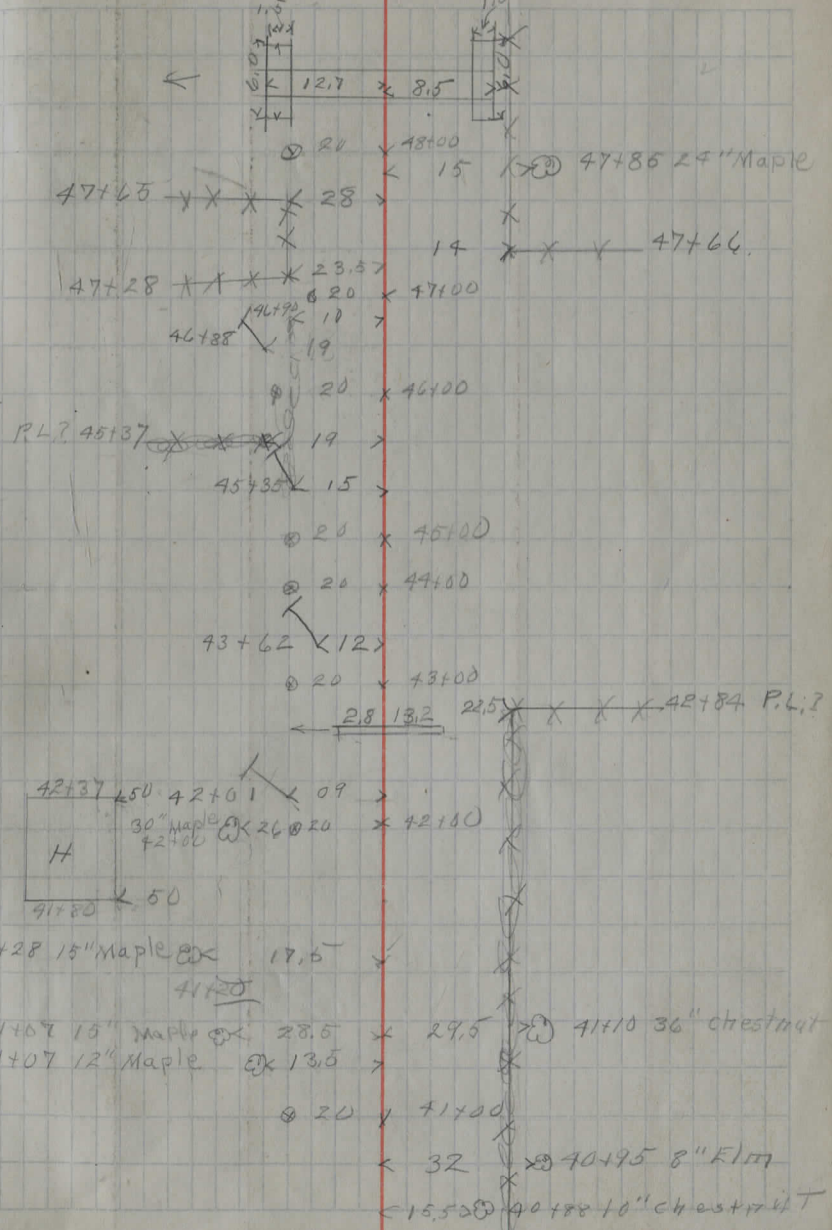 6.0 12.7 8.5
20 48+00
15 47+86 24" Maple
47+65 28
14 47+66
47+28 23.5
20 47+00
46+90 10
46+88 19
20 46+00
P.L.? 45+37 19
45+35 15
20 45+00
20 44+00
43+62 12
20 43+00
22.5 42+84 P.L.?
2.8 13.2
42+37 50 42+01 09
30" Maple 26 20 42+00
42+00
H
41+80 50
+28 15" Maple 17.5
41+20
1+07 15" Maple 28.5 29.5 41+10 36" Chestnut
1+07 12" Maple 13.5
20 41+00
32 40+95 8" Elm
15.5 40+88 10" Chestnut